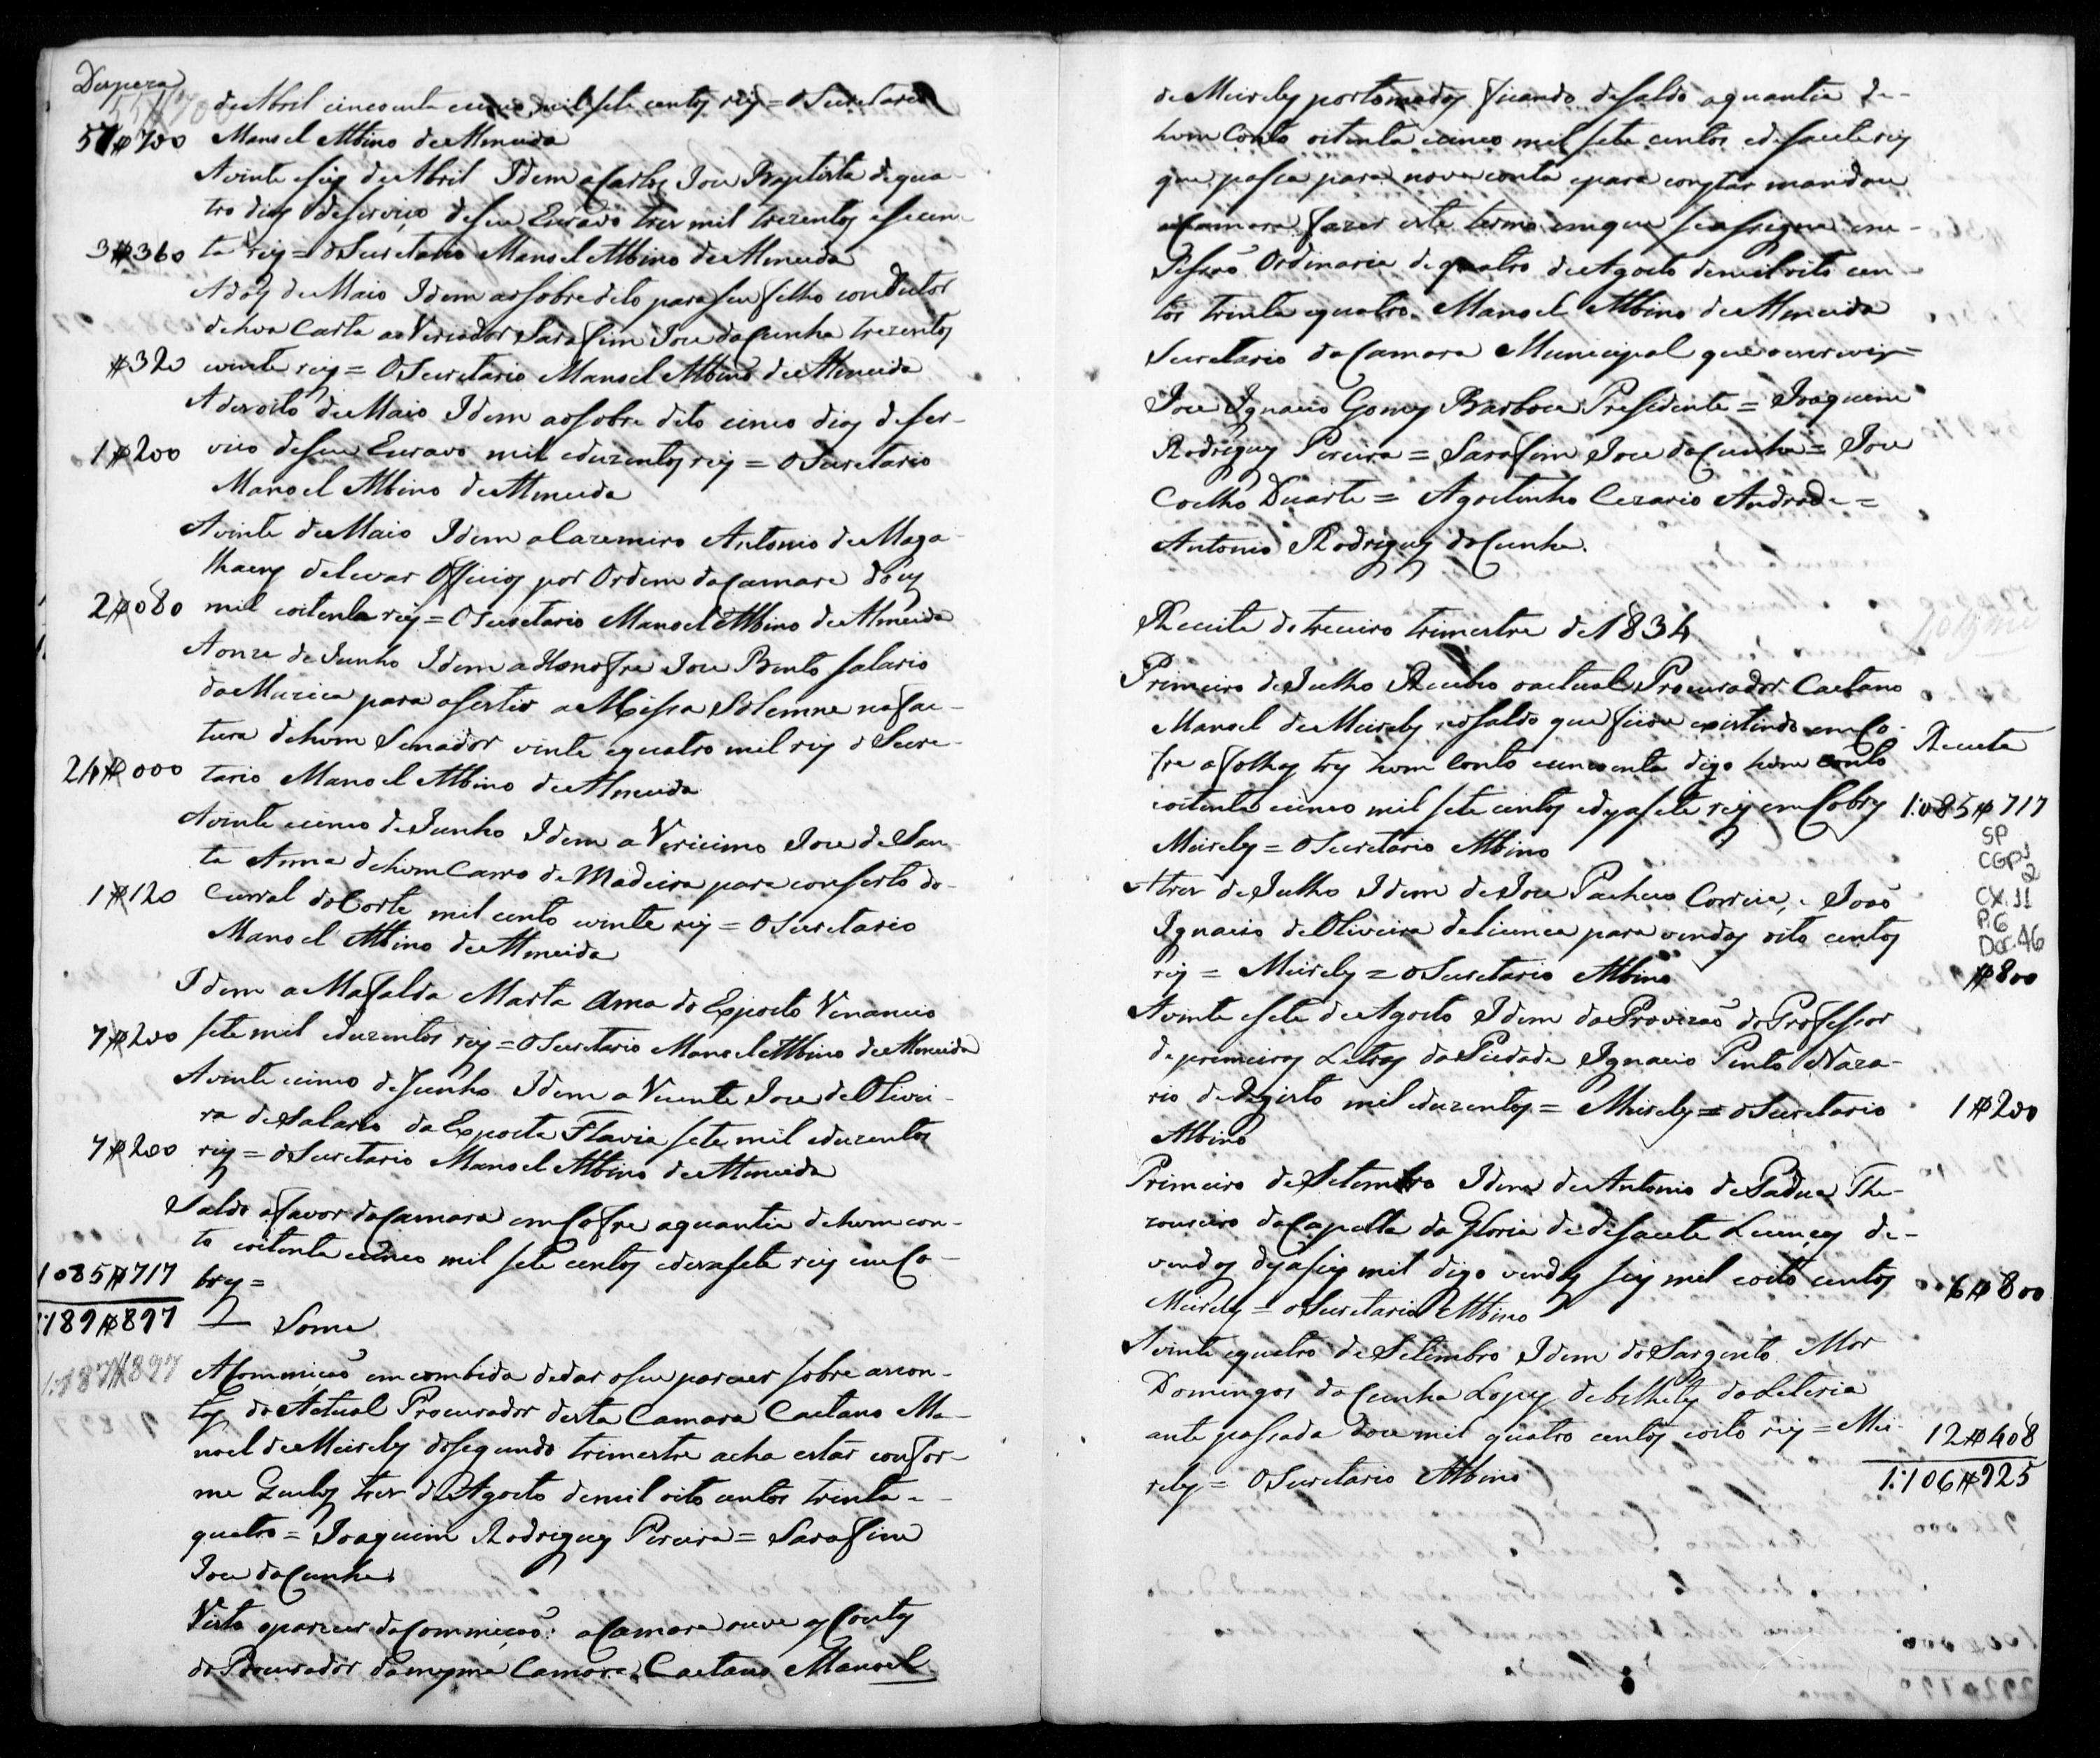 Despeza
de Abril cincoenta e cinco mil sete centos reis = O Secretario
57$700 Manoel Albino de Almeida
A vinte e seis de Abril Idem a Carlos Joze Baptista de qua-
tro dias de serviço de seu Escravo tres mil trezentos e secen-
3$360 ta reis = O Secretario Manoel Albino de Almeida
A dois de Maio Idem ao sobredito para seu filho conductor
de hua Carta ao Veriador Sarafim Joze da Cunha trezentos
$320 e vinte reis = O Secretario Manoel Albino de Almeida
A dezoito de Maio Idem ao sobre dito cinco dias de ser-
1$200 vico de seu Escravo mil e duzentos reis = O Secretario
Manoel Albino de Almeida
A vinte de Maio Idem a Cazemiro Antonio de Maga-
lhaens de levar Officios por Ordem da Camara dois
2$080 mil e oitenta reis = O Secretario Manoel Albino de Almeida
A onze de Junho Idem a Honofre Joze Bento salario
da Muzica para asestir a Missa Solemne na fac-
tura de hum Senador vinte e quatro mil reis O Secre-
24$000 tario Manoel Albino de Almeida
A vinte e cinco de Junho Idem a Vericimo Joze de San-
ta Anna de hum Carro de Madeira para conserto do
1$120 Curral do Corte mil cento e vinte reis = O Secretario
Manoel Albino de Almeida
Idem a Mafalda Marta Ama do Exposto Venancio
7$200 sete mil e duzentos reis = O Secretario Manoel Albino de Almeida
A vinte e cinco de Junho Idem a Vicente Joze de Olivei-
ra de Salario da Exposta Flavia sete mil e duzentos
7$200 reis = O Secretario Manoel Albino de Almeida
Saldo a favor da Camara em Cofre a quantia de hum con-
to e oitenta e cinco mil sete centos e dezasete reis em Co-
1085$717 bres =
1:189$897 Soma
1:187$897 A Commição emcombida de dar o seu parecer sobre as con-
tas do Actual Procurador desta Camara Caetano Ma-
noel de Meireles do segundo trimestre acha estar confor-
me Queluz tres de Agosto de mil oito centos trinta e
quatro = Joaquim Rodrigues Pereira = Sarafim
Joze da Cunha.
Visto o parecer da Commição: a Camara ouve as Contas
do Procurador da mesma Camara, Caetano Manoel
de Meireles por tomadas ficando de saldo a quantia de
hum Conto oitenta e cinco mil sete centos e desacete reis
que passa para nova conta e para constar mandou
a Camara fazer este termo em que se assigna em
Sessão Ordinaria de quatro de Agosto de mil oito cen-
tos trinta e quatro. Manoel Albino de Almeida
Secretario da Camara Municipal que o escrevi =
Joze Ignacio Gomes Barboza Presidente = Joaquim
Rodrigues Pereira = Sarafim Joze da Cunha = Joze
Coelho Duarte = Agostinho Cezario Andrade =
Antonio Rodrigues da Cunha.
Receita do treceiro trimestre de 1834
Primeiro de Julho Recebeo o actual Procurador Caetano
Manoel de Meireles no saldo que ficou existindo em Co-
Receita
fre a folhas tres hum Conto cincoenta digo hum conto
e oitenta e cinco mil sete centos e dezasete reis em Cobres 1:085$717
Meireles = O Secretario Albino
SP
CGP1
2
CX. 11
P.6
Doc. 46
A tres de Julho Idem de Joze Pacheco Correia, e João
Ignacio de Oliveira de licença para vendas oito centos
reis = Meireles = O Secretario Albino $800
A vinte e sete de Agosto Idem da Provizão do Professor
de primeiras Letras da Piedade Ignacio Pinto Naza-
rio de Rezisto mil e duzentos = Meireles = O Secretario 1$200
Albino
Primeiro de Setembro Idem de Antonio de Padua The-
zoureiro da Capella da Gloria de desacete Licenças de
vendas dezaseis mil digo vendas seis mil e oito centos 6$800
Meireles = O Secretario Albino
A vinte e quatro de Setembro Idem do Sargento Mor
Domingos da Cunha Lopes de bilhetes da Loteria
ante passada doze mil quatro centos e oito reis = Mei- 12$408
reles = O Secretario Albino 1:106$925